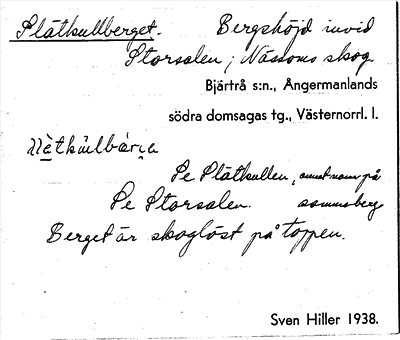 Slätkullberget. Bergshöjd invid
Storsalen, i Nässoms skog.
Bjärtrå s:n., Ångermanlands
södra domsagas tg., Västernorrl. l.
Se Slätkullen, annat namn på
Se Storsalen. samma berg
Berget är skoglöst på toppen.
Sven Hiller 1938.